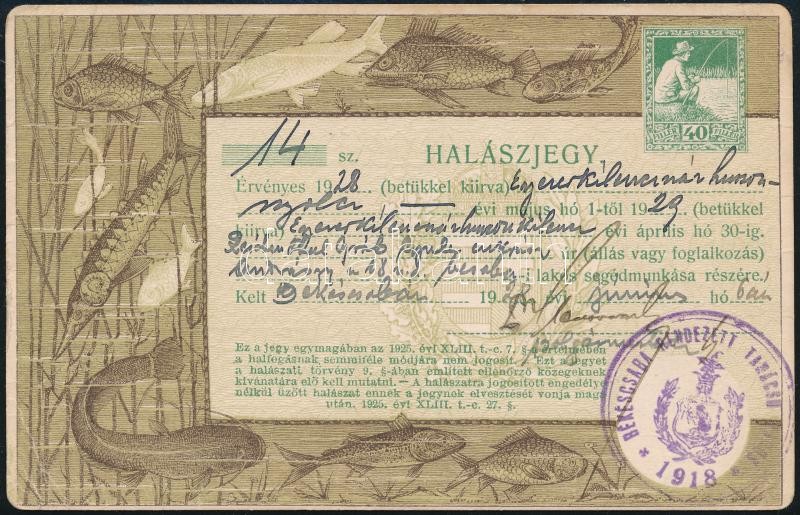 40
FILLÉR FILLÉR
14 sz. HALÁSZJEGY.
Érvényes 1928 (betükkel kiirva) Egyezerkilencszázhuszon-
nyolc évi május hó 1-től 1929 (betükkel
kiirva Egyezerkilencszázhuszonkilenc évi április hó 30-ig.
úr (állás vagy foglalkozás)
Andrássy u i lakos segédmunkása részére.
Kelt Békéscsabán 1928 évi junius hó 6án
polgármester
Ez a jegy egymagában az 1925. évi XLIII. t.-c. 7. §-a értelmében
a halfogásnak semmiféle módjára nem jogosit. Ezt a jegyet
a halászati törvény 9. §-ában emlitett ellenőrző közegeknek
kivánatára elő kell mutatni. — A halászatra jogositott engedélye
nélkül üzött halászat ennek a jegynek elvesztését vonja maga
után. 1925. évi XLIII. t.-c. 27. §.
BÉKÉSCSABA RENDEZETT TANÁCSU
* 1918 *